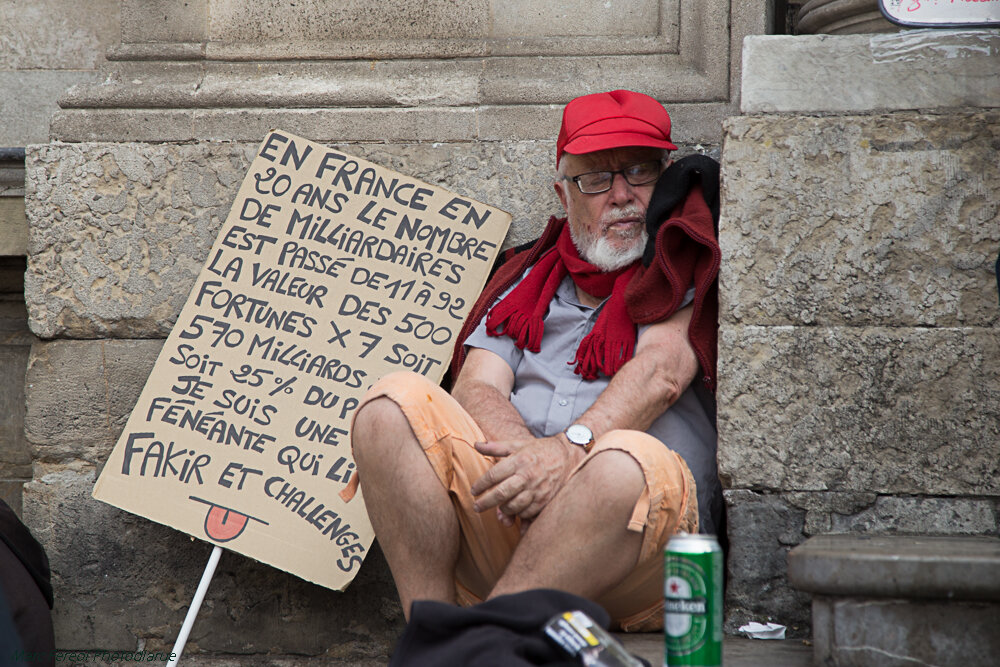 EN FRANCE EN
20 ANS LE NOMBRE
DE MILLIARDAIRES
EST PASSÉ DE 11 À 92
LA VALEUR DES 500
FORTUNES X 7 SOIT
570 MILLIARDS
SOIT 25% DU P
JE SUIS UNE
FÉNÉANTE QUI LI
FAKIR ET CHALLENGES
Heineken